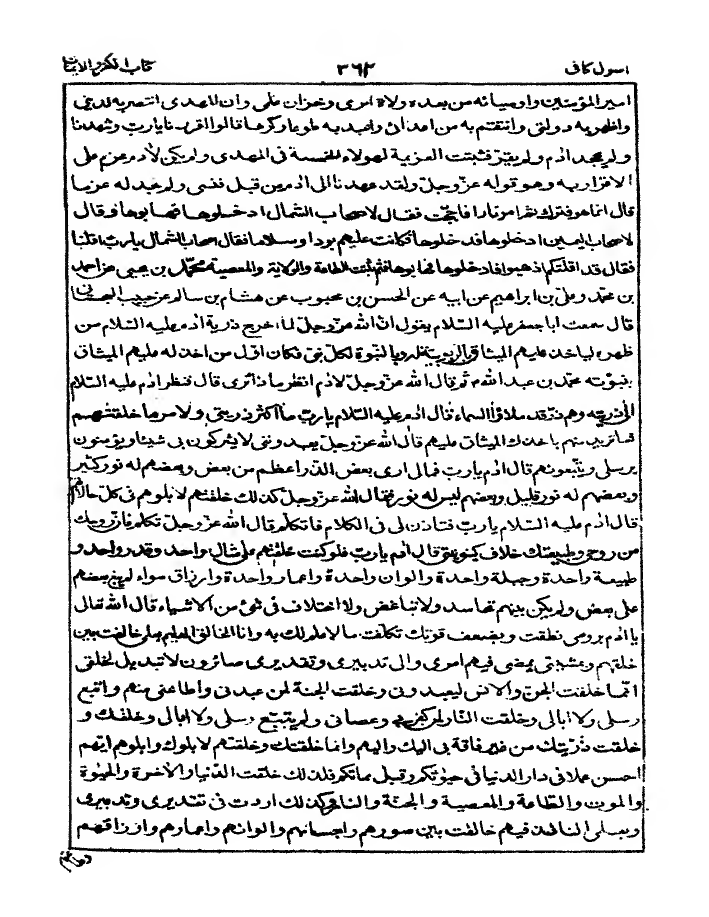 اسول كاف ٣٦٢ كتاب الكفر والايمان
امير المؤمنين واوصيائه من بعده ولاة امرى وخزان علمى وان المهدى انتصر به لدينى
واظهر به دولتى وانتقم به من اعدائى واعبد به طوعا وكرها قالوا اقررنا يا رب وشهدنا
ولم يجحد ادم ولم يقر فثبتت العزيمة لهؤلاء الخمسة فى المهدى ولم يكن لادم عزم على
الاقرار به وهو قوله عز وجل ولقد عهدنا الى ادم من قبل فنسى ولم نجد له عزما
قال انما هو فترك ثم امر نارا فاججت فقال لاصحاب الشمال ادخلوها فهابوها وقال
لاصحاب اليمين ادخلوها فدخلوها فكانت عليهم بردا وسلاما فقال اصحاب الشمال يا رب اقلنا
فقال قد اقلتكم اذهبوا فادخلوها فهابوها فثم ثبتت الطاعة والولاية والمعصية محمد بن يحيى عن احمد
بن محمد وعلى بن ابراهيم عن ابيه عن الحسن بن محبوب عن هشام بن سالم عن حبيب السجستانى
قال سمعت ابا جعفر عليه السلام يقول ان الله عز وجل لما اخرج ذرية ادم عليه السلام من
ظهره ليأخذ عليهم الميثاق بالربوبية له وبالنبوة لكل نبى فكان اول من اخذ له عليهم الميثاق
بنبوته محمد بن عبد الله ثم قال الله عز وجل لادم انظر ماذا ترى قال فنظر ادم عليه السلام
الى ذريته وهم ذر قد ملأوا السماء قال ادم عليه السلام يا رب ما اكثر ذريتى ولامر ما خلقتهم
فما تريد منهم باخذك الميثاق عليهم قال الله عز وجل يعبدوننى لا يشركون بى شيئا ويؤمنون
برسلى ويتبعونهم قال ادم يا رب فما لى ارى بعض الذر اعظم من بعض وبعضهم له نور كثير
وبعضهم له نور قليل وبعضهم ليس له نور فقال الله عز وجل كذلك خلقتهم لابلوهم فى كل حالاتهم
قال ادم عليه السلام يا رب فتأذن لى فى الكلام فاتكلم قال الله عز وجل تكلم فان روحك
من روحى وطبيعتك خلاف كينونتى قال ادم يا رب فلو كنت خلقتهم على مثال واحد وقدر واحد و
طبيعة واحدة وجبلة واحدة والوان واحدة واعمار واحدة وارزاق سواء لم يبغ بعضهم
على بعض ولم يكن بينهم تحاسد ولا تباغض ولا اختلاف فى شئ من الاشياء قال الله تعالى
يا ادم بروحى نطقت وبضعف قوتك تكلفت ما لا علم لك به وانا الخالق العليم بعلمى خالفت بين
خلقهم وبمشيتى يمضى فيهم امرى والى تدبيرى وتقديرى صائرون لا تبديل لخلقى
انما خلقت الجن والانس ليعبدونى وخلقت الجنة لمن عبدنى واطاعنى منهم واتبع
رسلى ولا ابالى وخلقت النار لمن كفر بى وعصانى ولم يتبع رسلى ولا ابالى وخلقتك و
خلقت ذريتك من غير فاقة بى اليك واليهم وانما خلقتك وخلقتهم لابلوك وابلوهم ايهم
احسن عملا فى دار الدنيا فى حيوتكم وقبل مماتكم فلذلك خلقت الدنيا والاخرة والحيوة
والموت والطاعة والمعصية والجنة والنار وكذلك اردت فى تقديرى وتدبيرى
وبعلمى النافذ فيهم خالفت بين صورهم واجسامهم والوانهم واعمارهم وارزاقهم